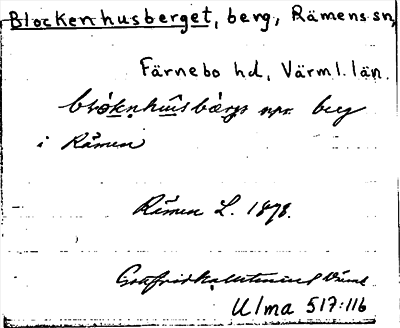 Blockenhusberget, berg, Rämens sn,
Färnebo hd, Värml. län.
npr. berg
i Rämen
Rämen L. 1878.
Gottfrid Kallstenius
Ulma 517:116